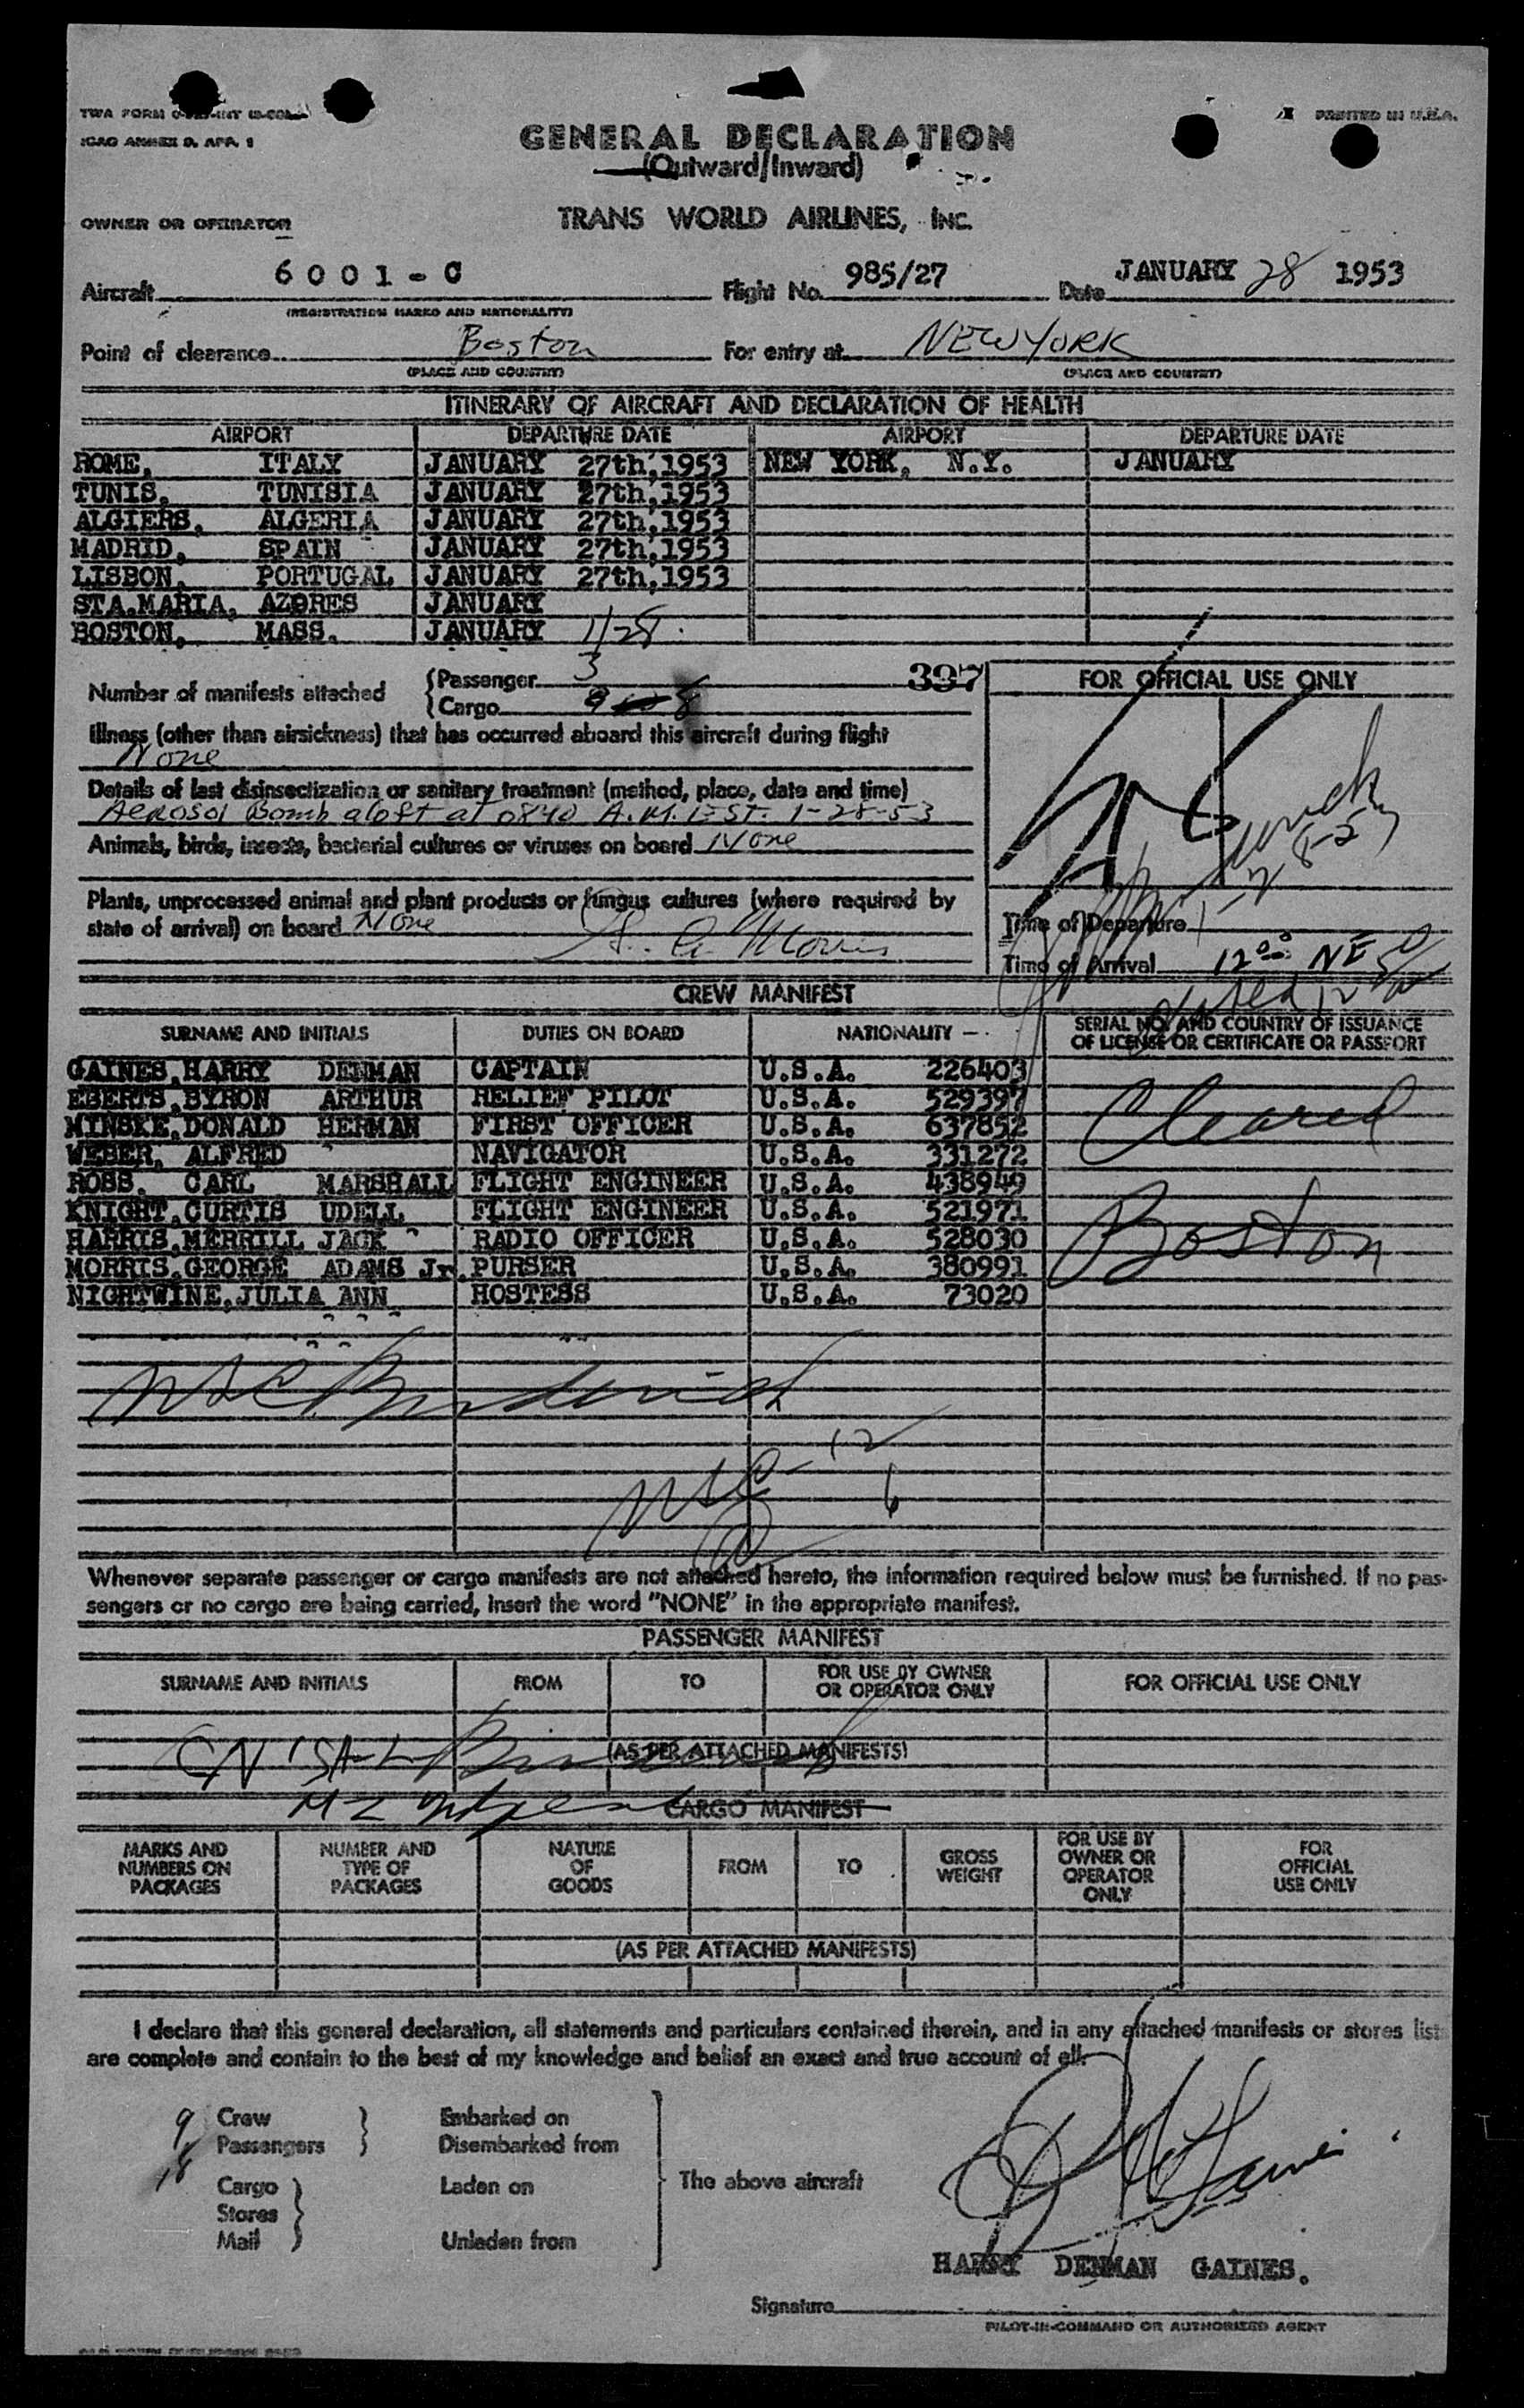 ICAO ANNEX 9, APP. 1
PRINTED IN U.S.A.
GENERAL DECLARATION
(Outward/Inward)
OWNER OR OPERATOR TRANS WORLD AIRLINES, INC.
Aircraft 6001-C Flight No. 985/27 Date JANUARY 28 1953
(REGISTRATION MARKS AND NATIONALITY)
Point of clearance Boston For entry at NEW YORK
(PLACE AND COUNTRY) (PLACE AND COUNTRY)
ITINERARY OF AIRCRAFT AND DECLARATION OF HEALTH
AIRPORT DEPARTURE DATE AIRPORT DEPARTURE DATE
ROME, ITALY JANUARY 27th,1953 NEW YORK, N.Y. JANUARY
TUNIS, TUNISIA JANUARY 27th,1953
ALGIERS, ALGERIA JANUARY 27th,1953
MADRID, SPAIN JANUARY 27th,1953
LISBON, PORTUGAL JANUARY 27th,1953
STA.MARIA, AZORES JANUARY
BOSTON, MASS. JANUARY 1/28.
Number of manifests attached { Passenger 3 397
{ Cargo
FOR OFFICIAL USE ONLY
Illness (other than airsickness) that has occurred aboard this aircraft during flight
None
Details of last disinsectization or sanitary treatment (method, place, date and time)
Aerosol Bomb aloft at 0840 A.M. EST. 1-28-53
Animals, birds, insects, bacterial cultures or viruses on board None
Plants, unprocessed animal and plant products or fungus cultures (where required by
state of arrival) on board None
G. A. Morris
Time of Departure
Time of Arrival 12 00 NE
CREW MANIFEST
SURNAME AND INITIALS DUTIES ON BOARD NATIONALITY SERIAL NO. AND COUNTRY OF ISSUANCE
OF LICENSE OR CERTIFICATE OR PASSPORT
GAINES,HARRY DENMAN CAPTAIN U.S.A. 226403
EBERTS,BYRON ARTHUR RELIEF PILOT U.S.A. 529397
MINSKE,DONALD HERMAN FIRST OFFICER U.S.A. 637852
WEBER, ALFRED NAVIGATOR U.S.A. 331272
ROSS, CARL MARSHALL FLIGHT ENGINEER U.S.A. 438949
KNIGHT,CURTIS UDELL FLIGHT ENGINEER U.S.A. 521971
HARRIS,MERRILL JACK RADIO OFFICER U.S.A. 528030
MORRIS,GEORGE ADAMS Jr. PURSER U.S.A. 380991
NIGHTWINE,JULIA ANN HOSTESS U.S.A. 73020
Cleared
Boston
Whenever separate passenger or cargo manifests are not attached hereto, the information required below must be furnished. If no pas-
sengers or no cargo are being carried, insert the word "NONE" in the appropriate manifest.
PASSENGER MANIFEST
SURNAME AND INITIALS FROM TO FOR USE BY OWNER
OR OPERATOR ONLY FOR OFFICIAL USE ONLY
(AS PER ATTACHED MANIFESTS)
CARGO MANIFEST
MARKS AND
NUMBERS ON
PACKAGES
NUMBER AND
TYPE OF
PACKAGES
NATURE
OF
GOODS
FROM
TO
GROSS
WEIGHT
FOR USE BY
OWNER OR
OPERATOR
ONLY
FOR
OFFICIAL
USE ONLY
(AS PER ATTACHED MANIFESTS)
I declare that this general declaration, all statements and particulars contained therein, and in any attached manifests or stores list
are complete and contain to the best of my knowledge and belief an exact and true account of all.
9 Crew Embarked on
18 Passengers Disembarked from
Cargo Laden on The above aircraft
Stores
Mail Unladen from
HARRY DENMAN GAINES.
Signature
PILOT-IN-COMMAND OR AUTHORIZED AGENT